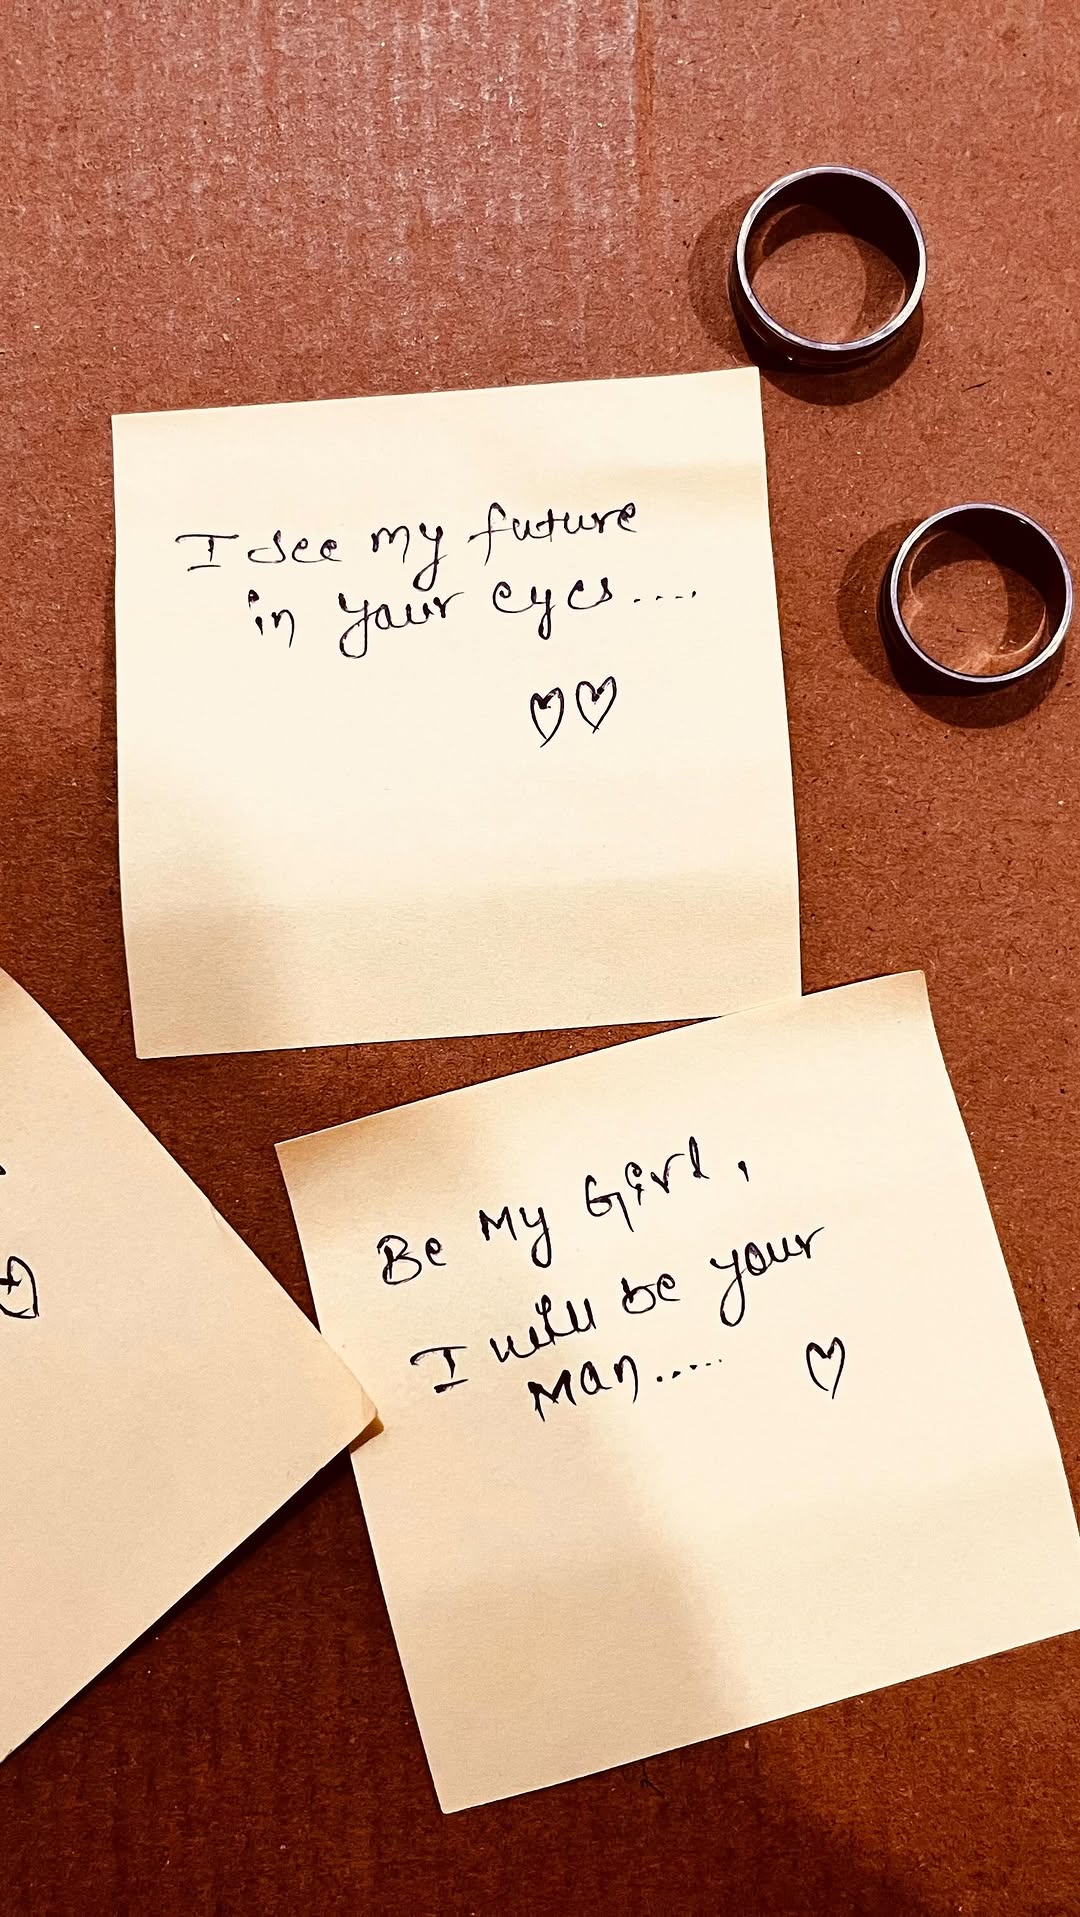 I see my future
in your eyes....
♡♡
Be My Girl,
I will be your
Man.....  ♡